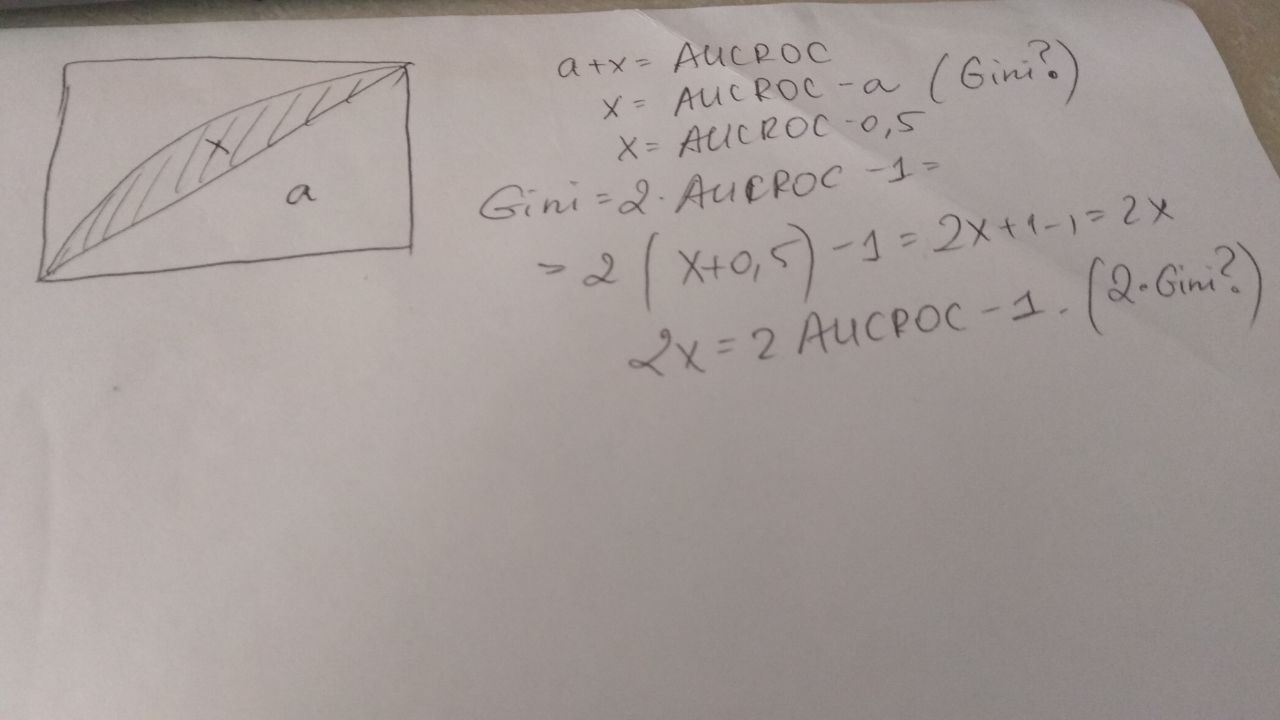 a+x= AUCROC
x= AUCROC-a (Gini?)
x= AUCROC-0,5
x
a
Gini=2·AUCROC-1=
=2(x+0,5)-1=2x+1-1=2x
2x=2AUCROC-1. (2·Gini?)